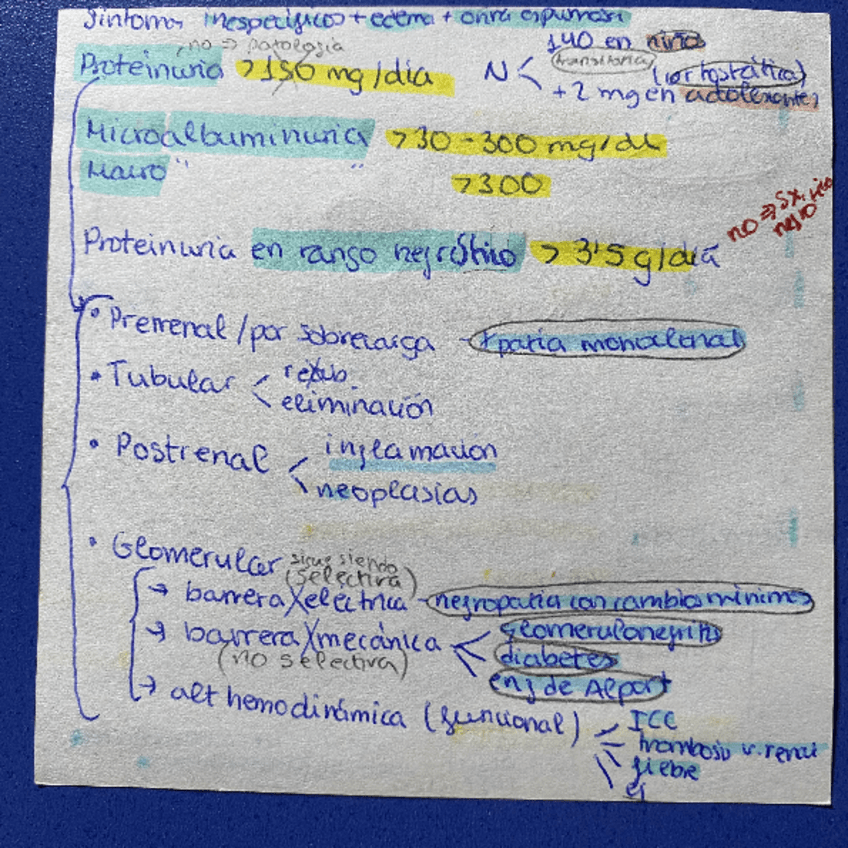 Síntomas inespecíficos + edema + orina espumosa
no => patología
140 en niños
Proteinuria >150 mg/día N <
transitoria (ortostática)
+2 mg en adolescentes
Microalbuminuria >30-300 mg/dL
Macro " " >300
no => Sx. 
Proteinuria en rango nefrótico > 3'5 g/día
• Prerrenal/por sobrecarga → +patía monoclonal
• Tubular < reab.
eliminación
• Postrenal < inflamación
neoplasias
• Glomerular sigue siendo
(selectiva)
→ barrera eléctrica - nefropatía con cambios mínimos
→ barrera mecánica < glomerulonefritis
(no selectiva) diabetes
enf de Alport
→ alt hemodinámica (funcional) ICC
trombosis v. renal
fiebre
ej